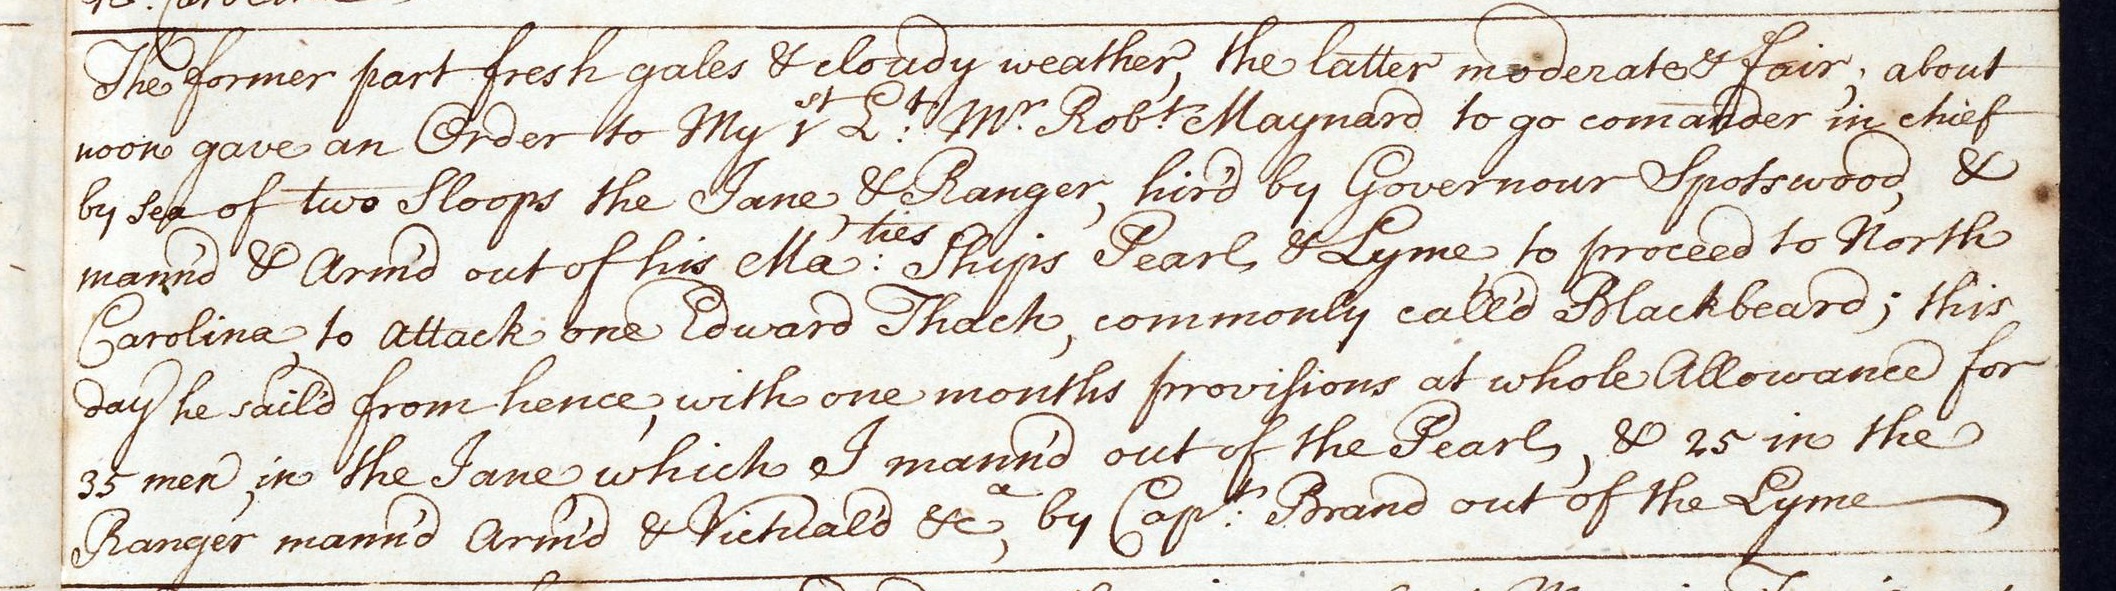 The former part fresh gales & cloudy weather, the latter moderate & fair, about
noon gave an Order to My 1st Lt: Mr Robt Maynard to go comander in chief
by sea of two Sloops the Jane & Ranger, hir'd by Governour Spotswood, &
mann'd & Arm'd out of his Ma:ties Ships Pearl & Lyme, to proceed to North
Carolina, to attack one Edward Thach, commonly call'd Blackbeard; this
day he sail'd from hence, with one months provisions at whole Allowance for
35 men, in the Jane which I mann'd out of the Pearl, & 25 in the
Ranger mann'd Arm'd & Victual'd &ca, by Capt: Brand out of the Lyme